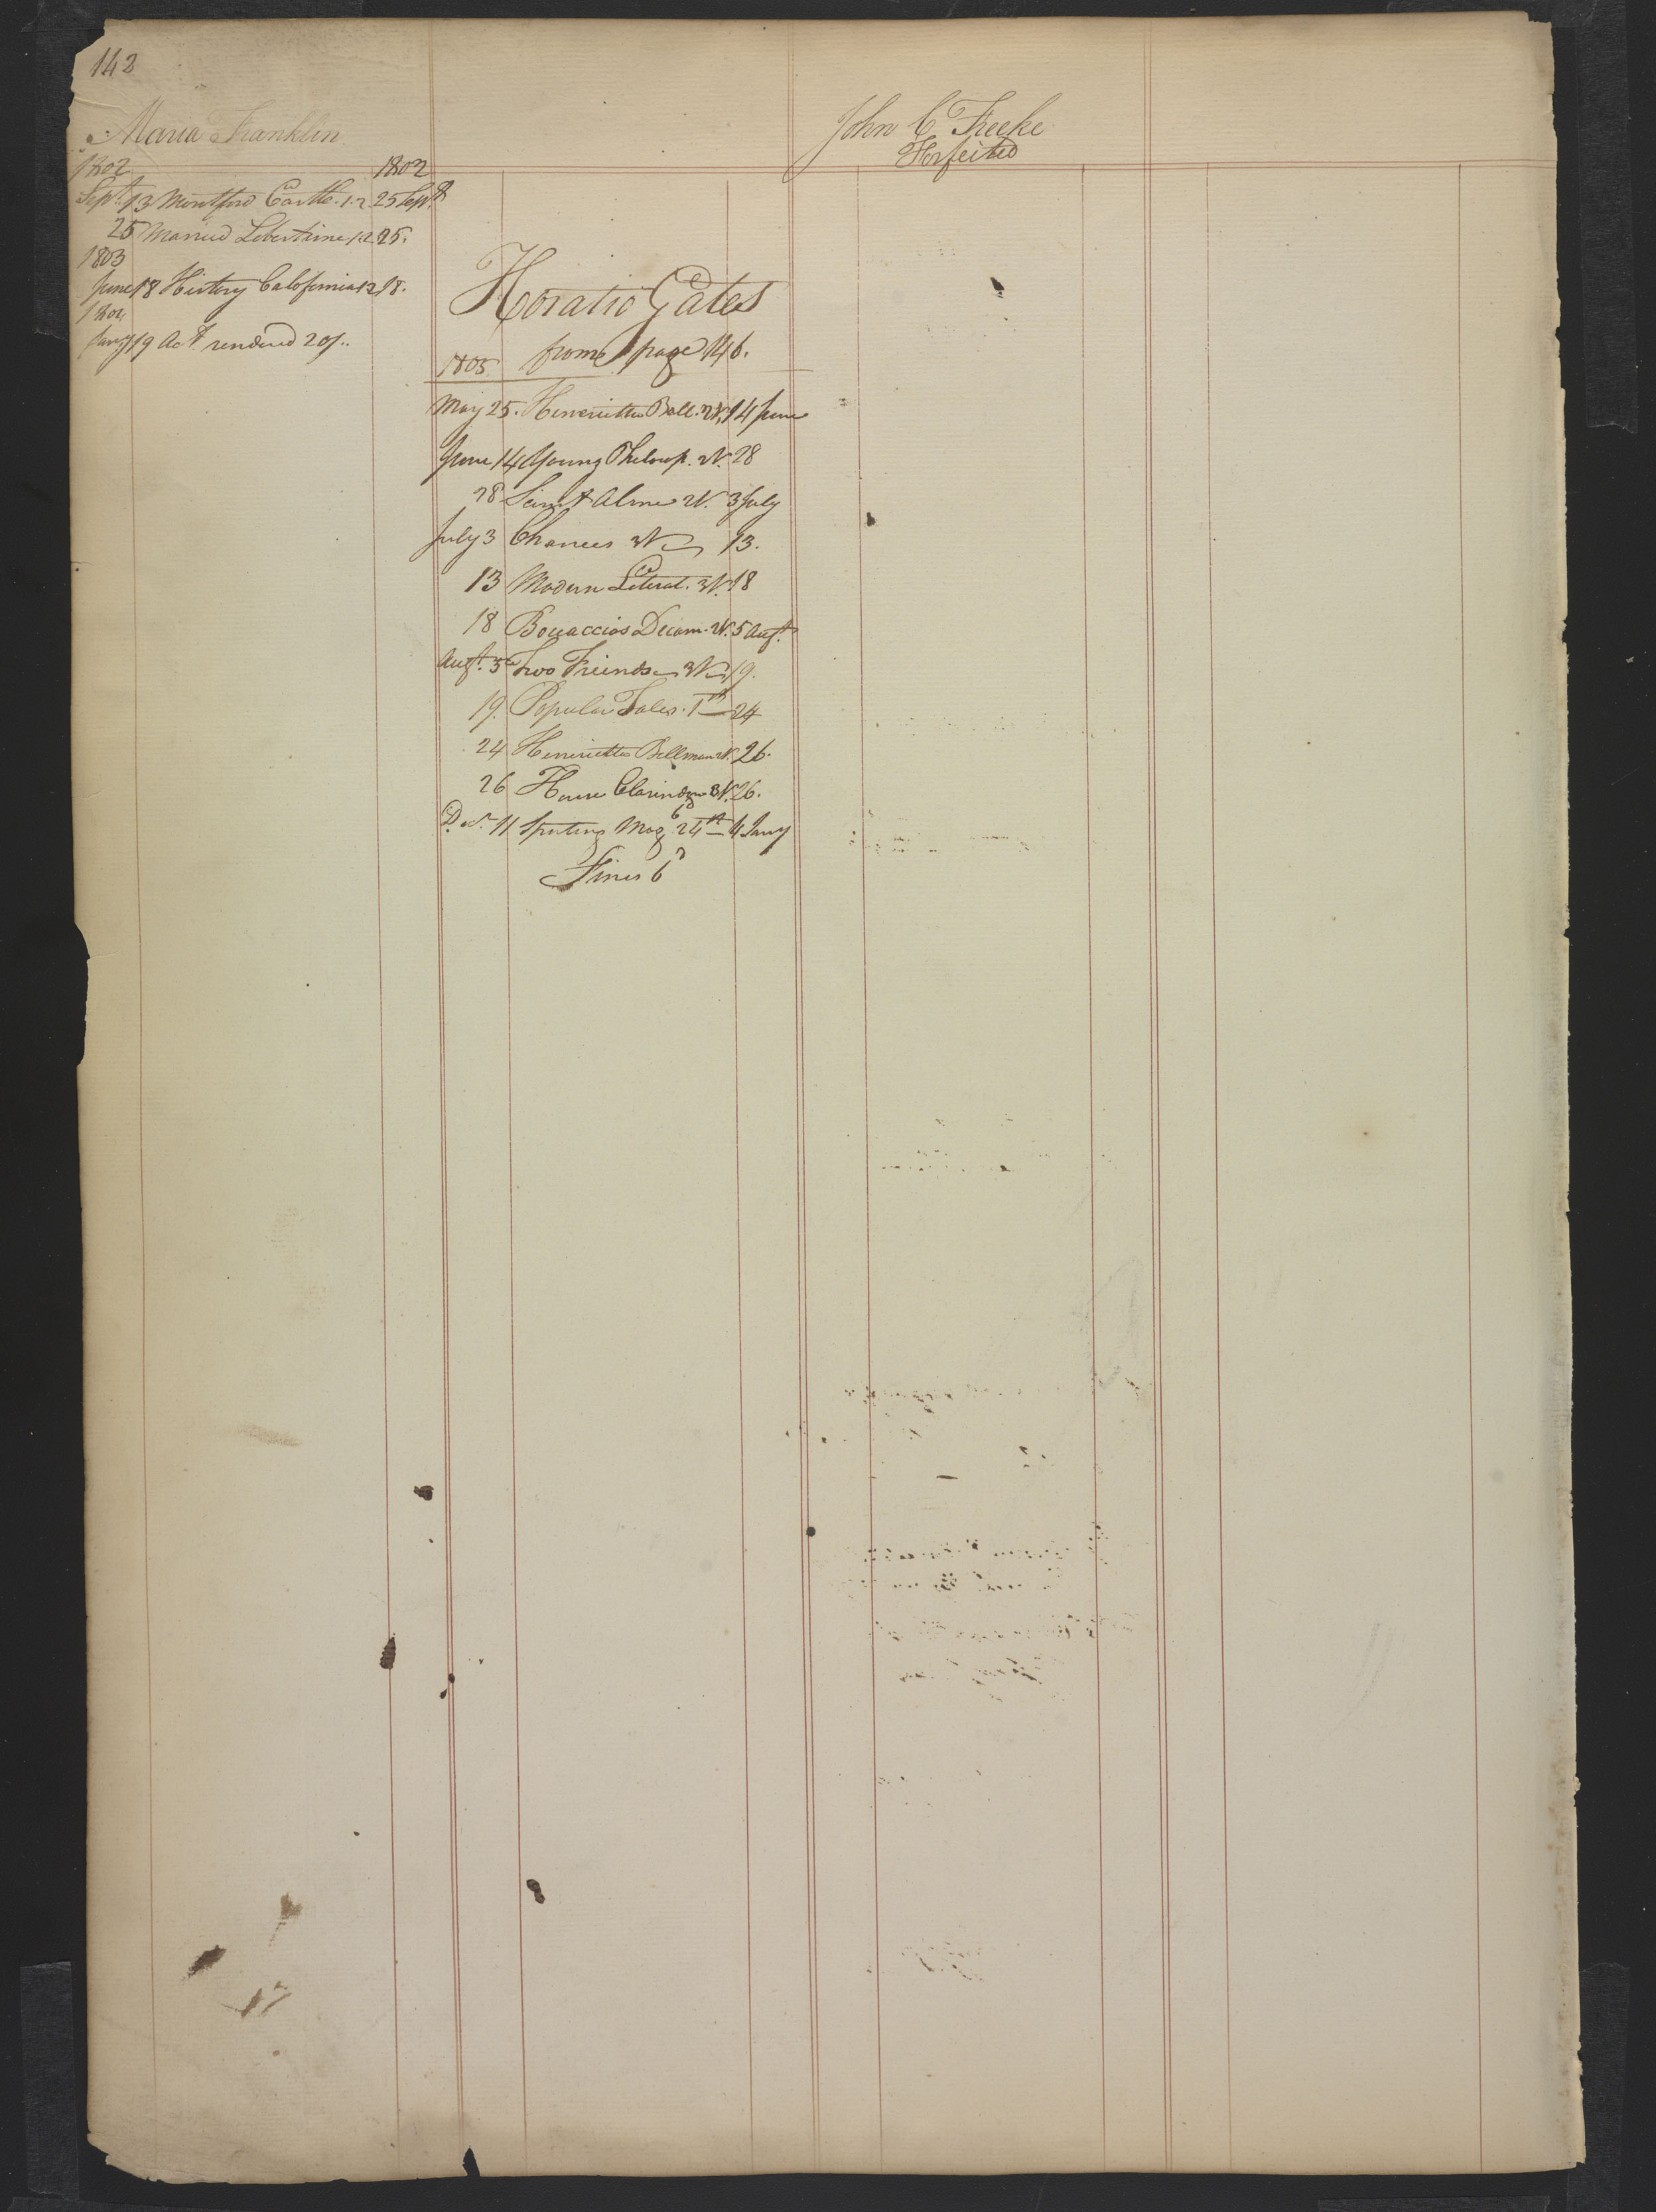 142
Maria Franklin
1802 1802
Sept. 13 Montford Castle. 1.2 25 Sept.
25 Married Libertine 1.2 25.
1803
June 18 History California 1.2 18.
1804
Jany 19 Act. rendered 20/..
Horatio Gates
from page 146.
1805
May 25. Henrietta Bell. 2V. 14 June
June 14 Young Philosop. 2V. 28
28 Saint Alme 2V. 3 July
July 3 Chances 3V 13.
13 Modern Literat. 3V. 18
18 Bocaccios Decam. 2V. 5 Augt.
Augt. 5 Two Friends 3V 19.
19. Popular Tales. 1st 24
24 Henrietta Bellman 2V. 26.
26 House 3V. 26.
Decr. 11 Sporting Mag 24th 4 Jany
6d
Fines 6d
John C Freeke
Forfeited